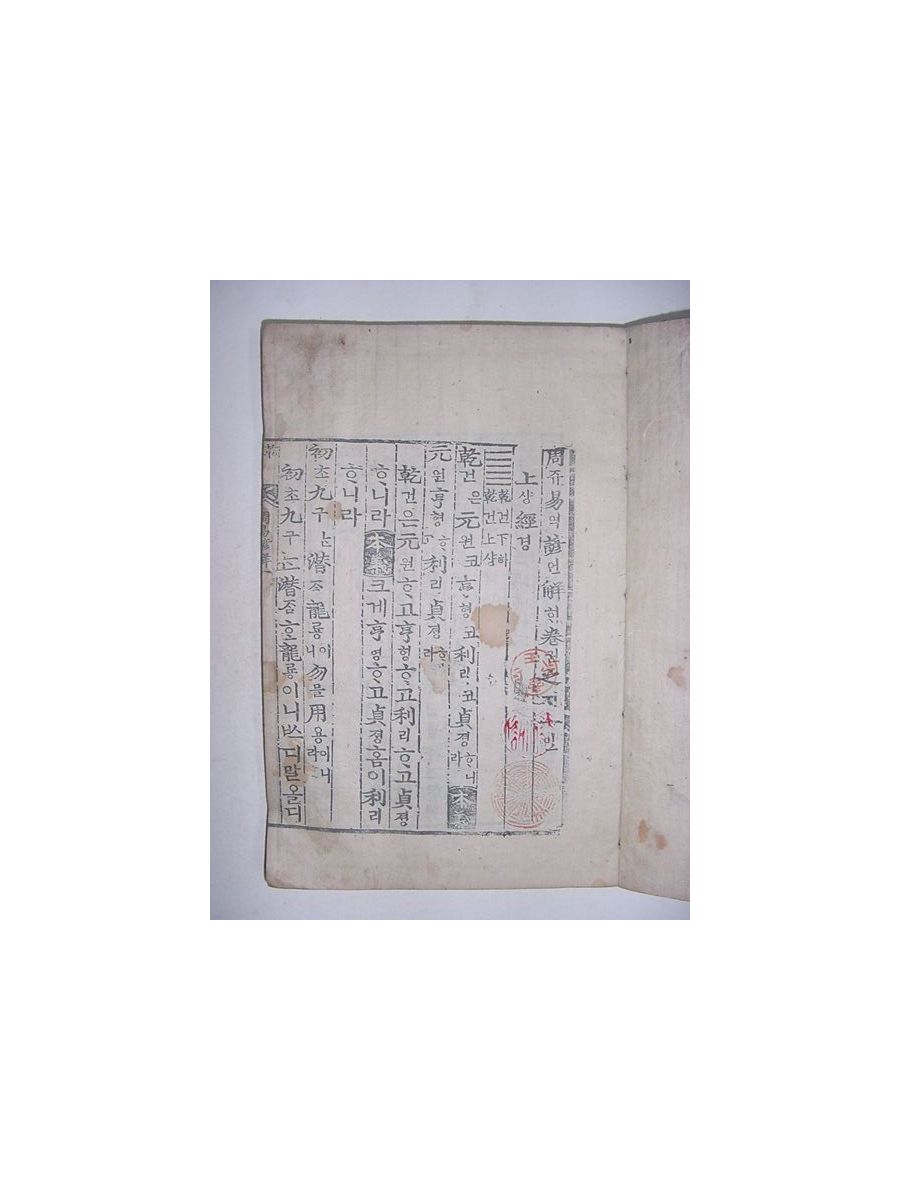 周쥬易역諺언解ᄒᆡ卷권之지一일
上샹經경
乾건下하
乾건上샹
乾건은元원코亨형코利리코貞뎡ᄒᆞ니라 本
元원亨형ᄒᆞ利리貞뎡ᄒᆞ라
乾건은元원ᄒᆞ고亨형ᄒᆞ고利리ᄒᆞ고貞뎡
ᄒᆞ니라 本義 크게亨형ᄒᆞ고貞뎡홈이利리
ᄒᆞ니라
初초九구ᄂᆞᆫ潛ᄌᆞᆷ龍룡이니勿믈用용이니라
初초九구ᄂᆞᆫ潛ᄌᆞᆷᄒᆞᆫ龍룡이니ᄡᅳ디말올디